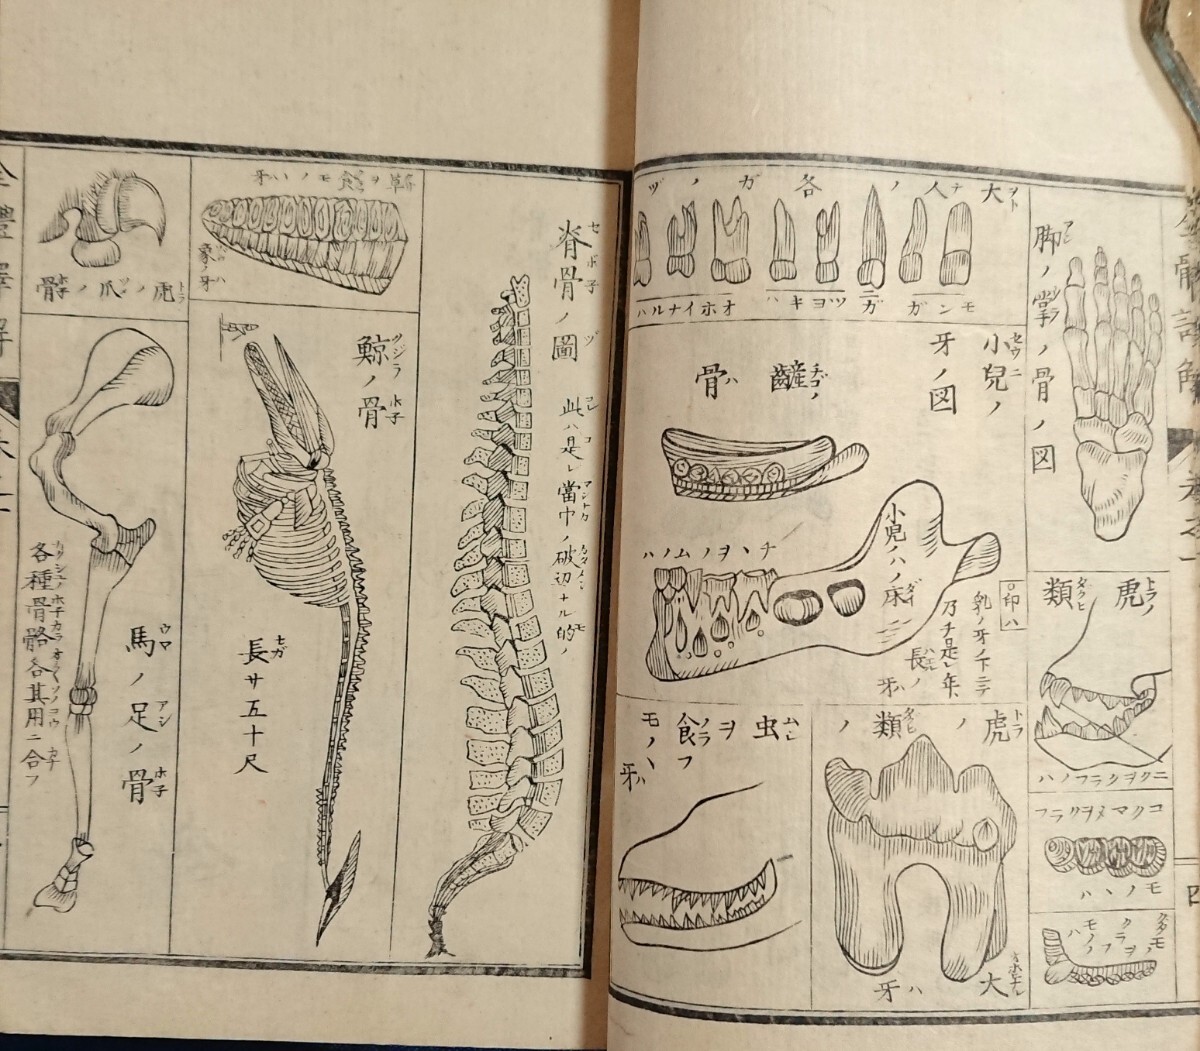 脚ノ掌ノ骨ノ図
虎ノ類
ニクヲクラフノハ
コクマメヲクラフ
モノヽハ
クダモノヲ
クラフ
モノノハ
大人ノ各ガノヅ
モンガガニツヨキハオホイナルハ
小兒ノ
牙ノ図
齒
骨ハ
小兒ノハノ床
チヽヲノムノハ
○印ハ
乳ノ牙ノ下ニテ
乃チ是レ年
長ノ
牙ハ
虎ノ類ノ
大牙ハ
虫ヲ食フ
モノヽ
牙ハ
脊骨ノ圖
セボ子ヅ
此ハ是レ當巾ノ破辺ナル的ノ
草ヲ食モノノハ牙
象ノ牙ハ
鯨ノ骨
クジラホ子
長サ五十尺
虎ノ爪ノ骨
馬ノ足ノ骨
各種骨骼各其用ニ合フ
全體
四